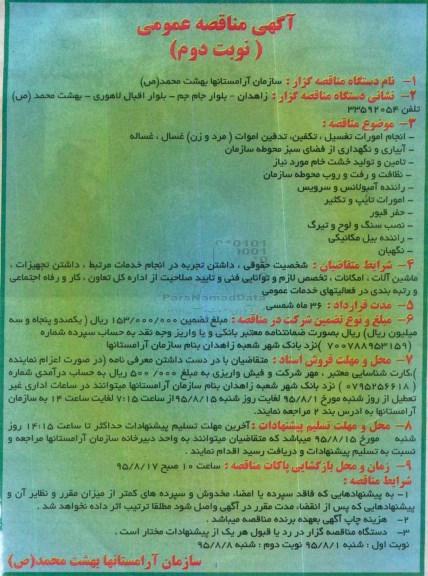 آگهی مناقصه عمومی
( نوبت دوم)
۱- نام دستگاه مناقصه گزار : سازمان آرامستانها بهشت محمد(ص)
۲- نشانی دستگاه مناقصه گزار : زاهدان - بلوار جام جم - بلوار اقبال لاهوری - بهشت محمد (ص)
تلفن ۳۳۵۹۲۰۵۴
۳- موضوع مناقصه :
- انجام امورات تغسیل ، تکفین، تدفین اموات ( مرد و زن) غسال ، غساله
- آبیاری و نگهداری از فضای سبز محوطه سازمان
- تامین و تولید خشت خام مورد نیاز
- نظافت و رفت و روب محوطه سازمان
- راننده آمبولانس و سرویس
- امورات تایپ و تکثیر
- حفر قبور
- نصب سنگ و لوح و تیرگ
- راننده بیل مکانیکی
- نگهبان
۴- شرایط متقاضیان : شخصیت حقوقی ، داشتن تجربه در انجام خدمات مرتبط ، داشتن تجهیزات ،
ماشین آلات ، امکانات ، تخصص لازم و توانایی فنی و تایید صلاحیت از اداره کل تعاون ، کار و رفاه اجتماعی
و رتبه بندی در فعالیتهای خدمات عمومی
۵- مدت قرارداد : ۳۶ ماه شمسی
۶- مبلغ و نوع تضمین شرکت در مناقصه : مبلغ تضمین ۱۵۳/۰۰۰/۰۰۰ ریال ( یکصدو پنجاه و سه
میلیون ریال) ریال بصورت ضمانتنامه معتبر بانکی و یا واریز وجه نقد به حساب سپرده شماره
( ۷۰۰۷۸۸۹۵۳۱۵۹ )نزد بانک شهر شعبه زاهدان بنام سازمان آرامستانها
۷- محل و مهلت فروش اسناد : متقاضیان با در دست داشتن معرفی نامه (در صورت اعزام نماینده
)،کارت شناسایی معتبر ، مهر شرکت و فیش واریزی به مبلغ ۵۰۰/۰۰۰ ریال به حساب درآمدی شماره
( ۰۷۹۵۲۵۶۶۱۸ ) نزد بانک شهر شعبه زاهدان بنام سازمان آرامستانها میتوانند در ساعات اداری غیر
تعطیل از روز شنبه مورخ ۹۵/۸/۱ لغایت روز شنبه ۹۵/۸/۱۵از ساعت ۷:۱۵ لغایت ساعت ۱۴ به سازمان
آرامستانها به ادرس بند ۲ مراجعه نمایند.
۸- محل و مهلت تسلیم پیشنهادات : آخرین مهلت تسلیم پیشنهادات حداکثر تا ساعت ۱۴:۱۵ روز
شنبه مورخ ۹۵/۸/۱۵ میباشد که متقاضیان میتوانند به واحد دبیرخانه سازمان آرامستانها مراجعه و
نسبت به تسلیم پیشنهادات و دریافت رسید اقدام نمایند.
۹- زمان و محل بازگشایی پاکات مناقصه : ساعت ۱۰ صبح ۹۵/۸/۱۷
شرایط مناقصه :
۱- به پیشنهادهایی که فاقد سپرده یا امضا، مخدوش و سپرده های کمتر از میزان مقرر و نظایر آن و
پیشنهادهایی که پس از انقضاء مدت مقرر در آگهی واصل شود مطلقا ترتیب اثر داده نخواهد شد .
۲- هزینه چاپ آگهی بعهده برنده مناقصه میباشد .
۳- دستگاه مناقصه گزار در رد یا قبول هر یک از پیشنهادات مختار است .
نوبت اول : شنبه ۹۵/۸/۱ نوبت دوم : شنبه ۹۵/۸/۸
سازمان آرامستانها بهشت محمد(ص)